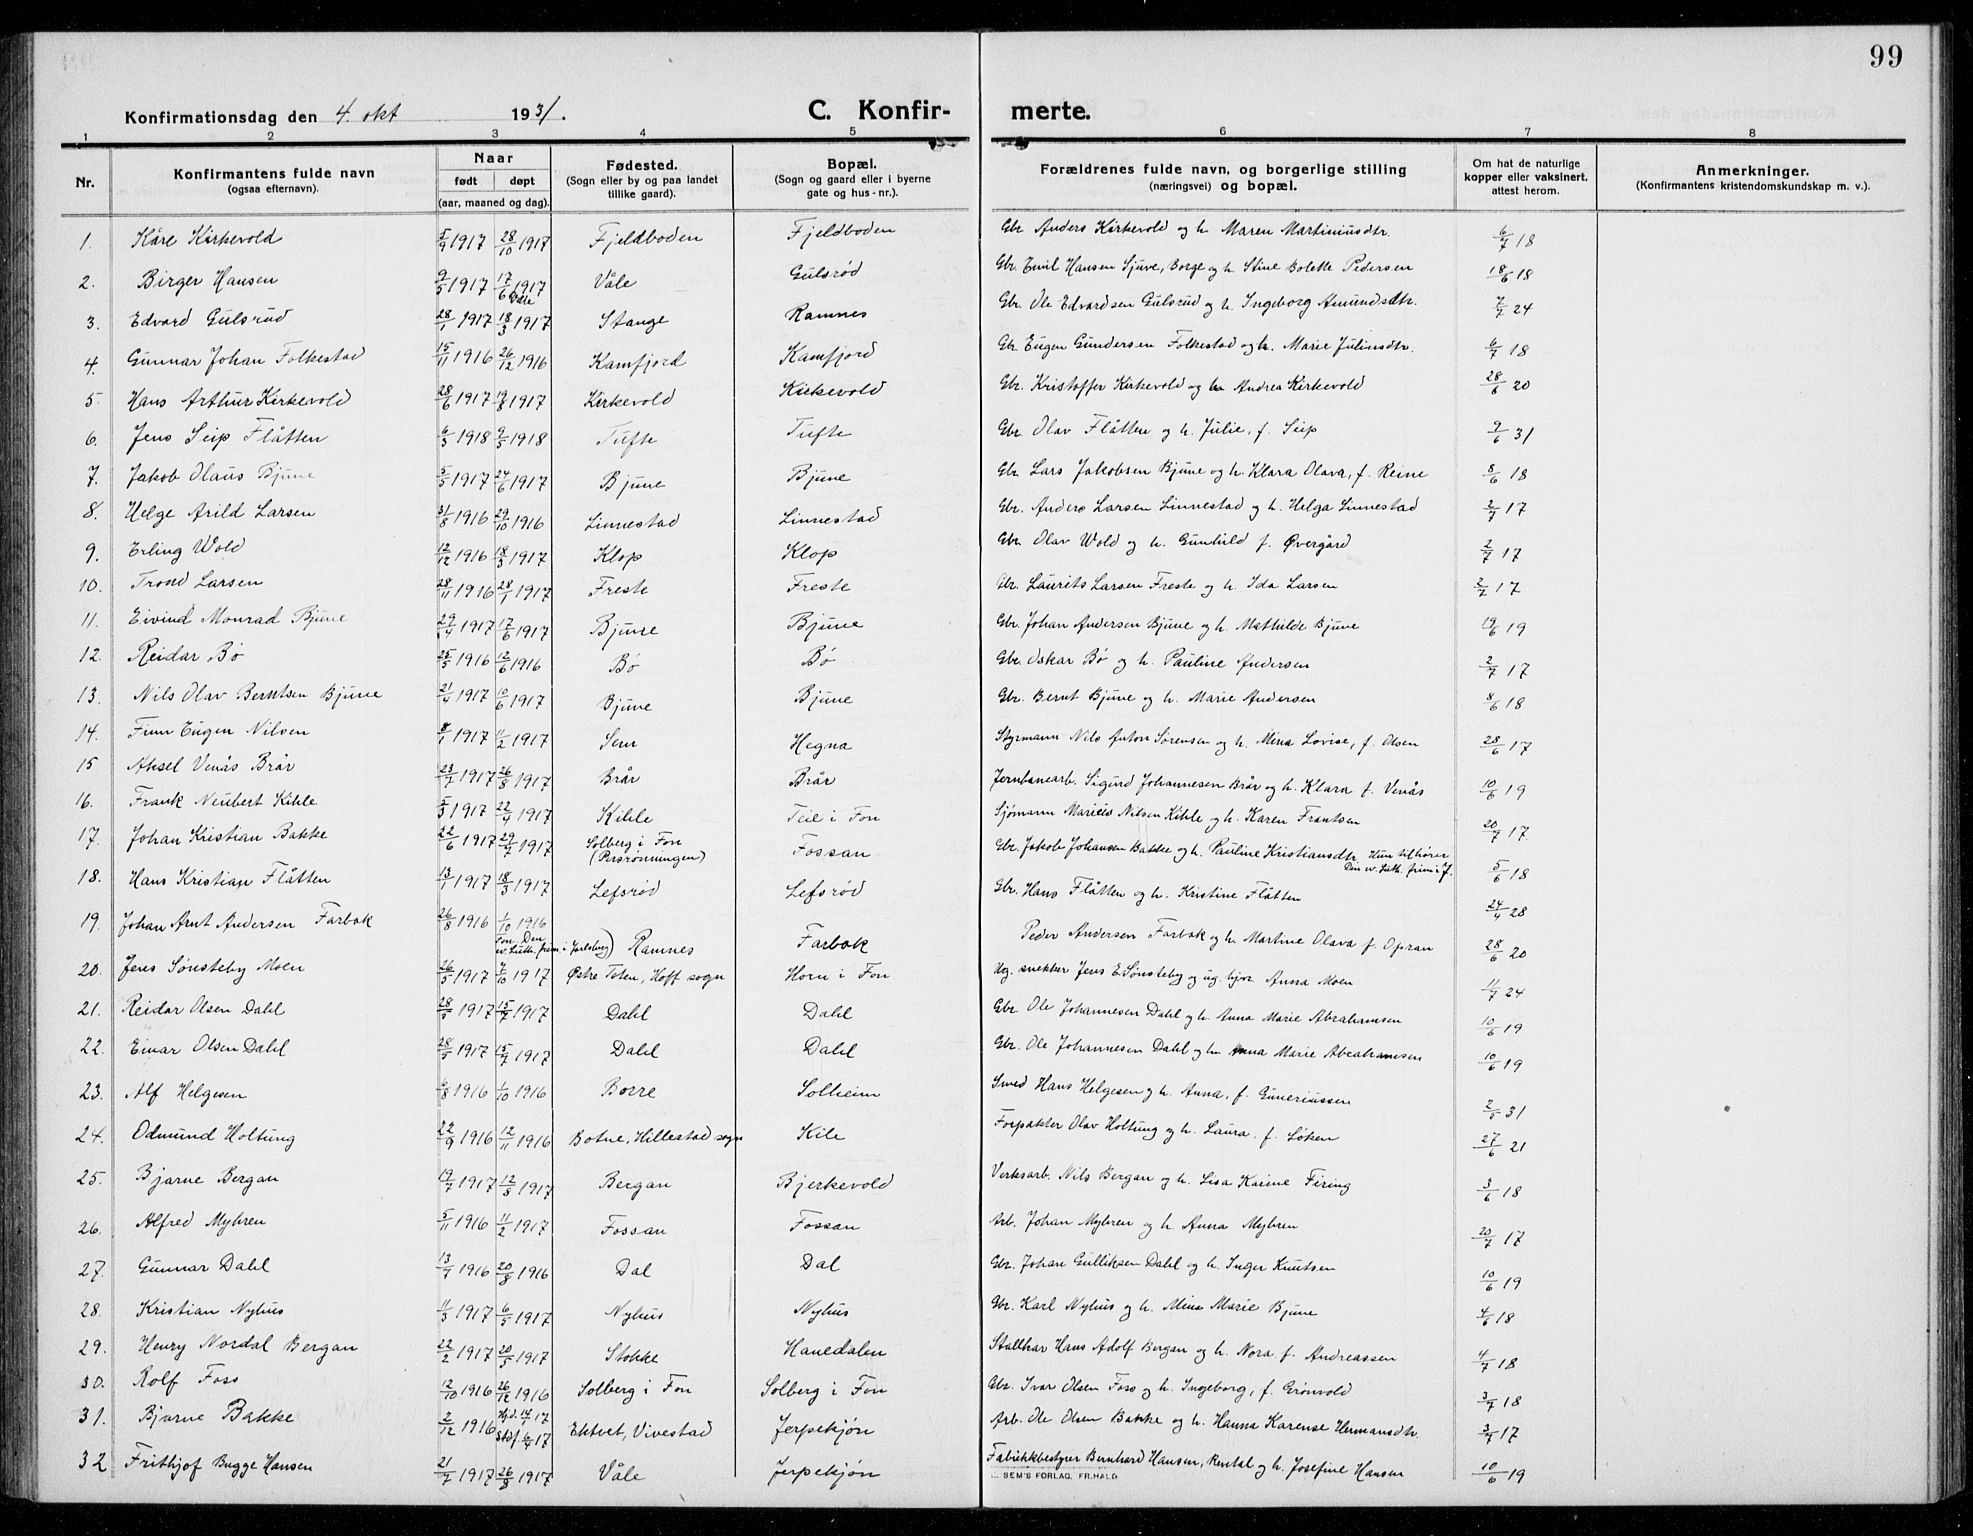 99
Konfirmationsdag den 4. okt 1931. C. Konfir- merte.
1 2 3 4 5 6 7 8
Nr. Konfirmantens fulde navn (ogsaa efternavn). Naar født døpt (aar, maaned og dag). Fødested. (Sogn eller by og paa landet tillike gaard). Bopæl. (Sogn og gaard eller i byerne gate og hus-nr.). Forældrenes fulde navn, og borgerlige stilling (næringsvei) og bopæl. Om hat de naturlige kopper eller vaksinert, attest herom. Anmerkninger. (Konfirmantens kristendomskundskap m. v.).
1. Kåre Kirkevold 5/9 1917 28/10 1917 Fjeldboden Fjeldboden Gbr. Anders Kirkevold og h. Maren Martiniusdtr. 6/7 18
2. Birger Hansen 9/5 1917 17/6 1917 Våle Våle Gulsrød Gbr. Emil Hansen Sjuve, Borge og h. Stine Bolette Pedersen 18/6 18
3. Edvard Gulsrud 28/1 1917 18/3 1917 Stange Ramnes Gbr. Ole Edvardsen Gulsrud og h. Ingeborg Amundsdtr. 2/7 24
4. Gunnar Johan Folkestad 15/11 1916 26/12 1916 Kamfjord Kamfjord Gbr. Eugen Gundersen Folkestad og h. Marie Juliusdtr. 6/7 18
5. Hans Arthur Kirkevold 28/6 1917 19/8 1917 Kirkevold Kirkevold Gbr. Kristoffer Kirkevold og h. Andrea Kirkevold 28/6 20
6. Jens Seip Flåtten 6/3 1918 9/5 1918 Tufte Tufte Gbr. Olav Flåtten og h. Julie, f. Seip 9/6 31
7. Jakob Olaus Bjune 5/5 1917 24/6 1917 Bjune Bjune Gbr. Lars Jakobsen Bjune og h. Klara Olava, f. Reine 8/6 18
8. Helge Arild Larsen 31/8 1916 29/10 1916 Linnestad Linnestad Gbr. Anders Larsen Linnestad og h. Helga Linnestad 2/7 17
9. Erling Wold 12/12 1916 18/3 1917 Klop Klop Gbr. Olav Wold og h. Gunhild f. Øvergård 2/7 17
10. Trond Larsen 28/11 1916 28/1 1917 Freste Freste Gbr. Laurits Larsen Freste og h. Ida Larsen 2/7 17
11. Eivind Monrad Bjune 29/4 1917 17/6 1917 Bjune Bjune Gbr. Johan Andersen Bjune og h. Mathilde Bjune 19/6 19
12. Reidar Bø 25/5 1916 12/6 1916 Bø Bø Gbr. Oskar Bø og h. Pauline Andersen 2/7 17
13. Nils Olav Berntsen Bjune 21/4 1917 10/6 1917 Bjune Bjune Gbr. Bernt Bjune og h. Marie Andersen 8/6 18
14. Finn Eugen Nilsen 8/1 1917 11/2 1917 Sem Hegna Styrmann Nils Anton Sørensen og h. Mina Lovise, f. Olsen 28/6 17
15 Aksel Venås Brår 23/7 1917 26/8 1917 Brår Brår Jernbanearb. Sigurd Johannesen Brår og h. Klara f. Venås 10/6 19
16. Frank Neubert Kihle 5/3 1917 22/4 1917 Kihle Teie i Fon Sjømann Marius Nilsen Kihle og h. Karen Frantsen 20/7 17.
17. Johan Kristian Bakke 22/6 1917 29/7 1917 Solberg i Fon (Persrønningen) Fossan Gbr. Jakob Johansen Bakke og h. Pauline Kristiansdtr. Hun tilhører Den ev. Luth. frim i J. 5/6 18
18. Hans Kristian Flåtten 13/1 1917 18/3 1917 Lefsrød Lefsrød Gbr. Hans Flåtten og h. Kristine Flåtten 24/4 28
19. Johan Arnt Andersen Farbok 26/8 1916 1/10 1916 Fon, Den ev. Luth. frim i Jarlsberg) Ramnes Farbok Peder Andersen Farbok og h. Martine Olava f. Opran 28/6 20
20. Jens Sønsteby Moen 26/5 1917 7/10 1917 Østre Toten, Hoff sogn Horn i Fon Ug. snekker Jens E Sønsteby og ug. tjpi. Anna Moen 11/7 24
21. Reidar Olsen Dahl 28/5 1917 15/7 1917 Dahl Dahl Gbr. Ole Johannesen Dahl og h. Anna Marie Abrahamsen 10/6 19
22. Einar Olsen Dahl 28/5 1917 15/7 1917 Dahl Dahl Gbr. Ole Johannesen Dahl og h. Anna Marie Abrahamsen 10/6 19
23. Alf Helgesen 6/8 1916 1/10 1916 Borre Solheim Smed Hans Helgesen og h. Anna, f. Guneriussen 2/5 31
24. Odmund Holtung 22/9 1916 12/11 1916 Botne, Hillestad sogn Kile Forpakter Olav Holtung og h. Laura, f. Løken 27/6 21
25. Bjarne Bergan 19/7 1917 12/8 1917 Bergan Bjerkevold Verksarb. Nils Bergan og h. Lisa Karine Firing 3/6 18
26. Alfred Myhren 5/11 1916 11/2 1917 Fossan Fossan Arb. Johan Myhren og h. Anna Myhren 20/7 17
27. Gunnar Dahl 13/7 1916 20/8 1916 Dal Dal Gbr. Johan Gulliksen Dahl og h. Inger Knutsen 10/6 19
28. Kristian Nyhus 11/3 1917 6/5 1917 Nyhus Nyhus Gbr. Karl Nyhus og h. Mina Marie Bjune 4/6 18
29. Henry Nordal Bergan 22/2 1917 20/5 1917 Stokke Hanedalen Stallkar Hans Adolf Bergan og h. Nora f. Andreassen 4/7 18
30. Rolf Foss 12/10 1916 26/12 1916 Solberg i Fon Solberg i Fon Gbr. Ivar Olsen Foss og h. Ingeborg, f. Grønvold 3/7 18
31. Bjarne Bakke 2/12 1916 Hjd. 14/1 17 Stdf. 6/4 17 Ektvet, Vivestad Jerpekjøn Arb. Ole Olsen Bakke og h. Hanna Karense Hermansdtr. 3/7 17
32 Frithjof Bugge Hansen 21/7 1917 26/8 1917 Våle Jerpekjøn Fabrikkbestyrer Bernhard Hansen, Revetal og h. Josefine Hansen 10/6 19
SEM'S FORLAG, FR.HALD